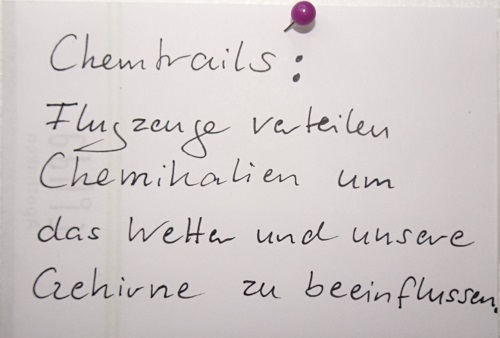 Chemtrails:
Flugzeuge verteilen
Chemikalien um
das Wetter und unsere
Gehirne zu beeinflussen.